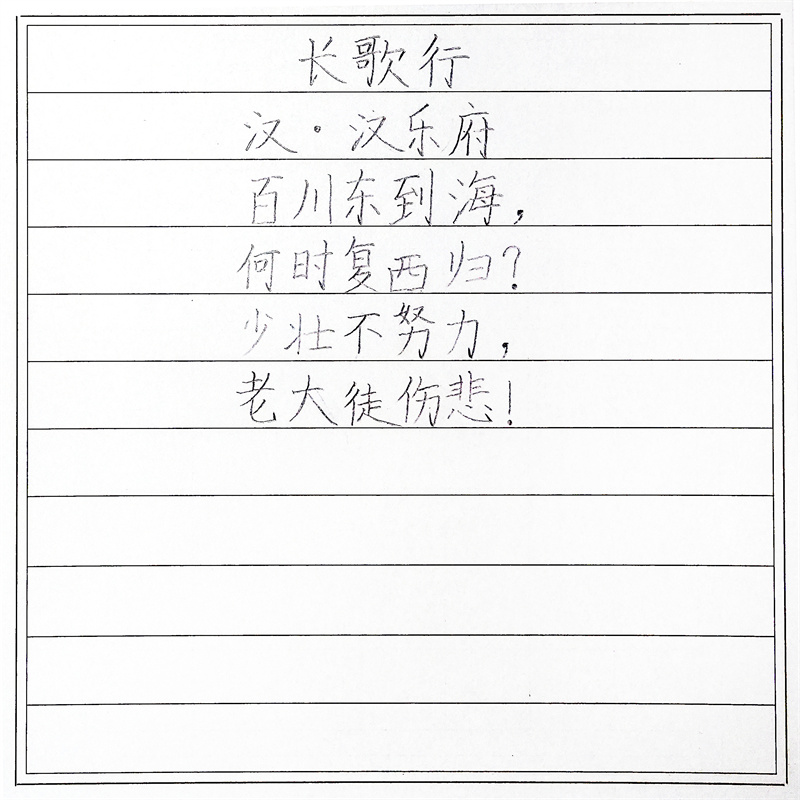 长歌行
汉·汉乐府
百川东到海，
何时复西归？
少壮不努力，
老大徒伤悲！